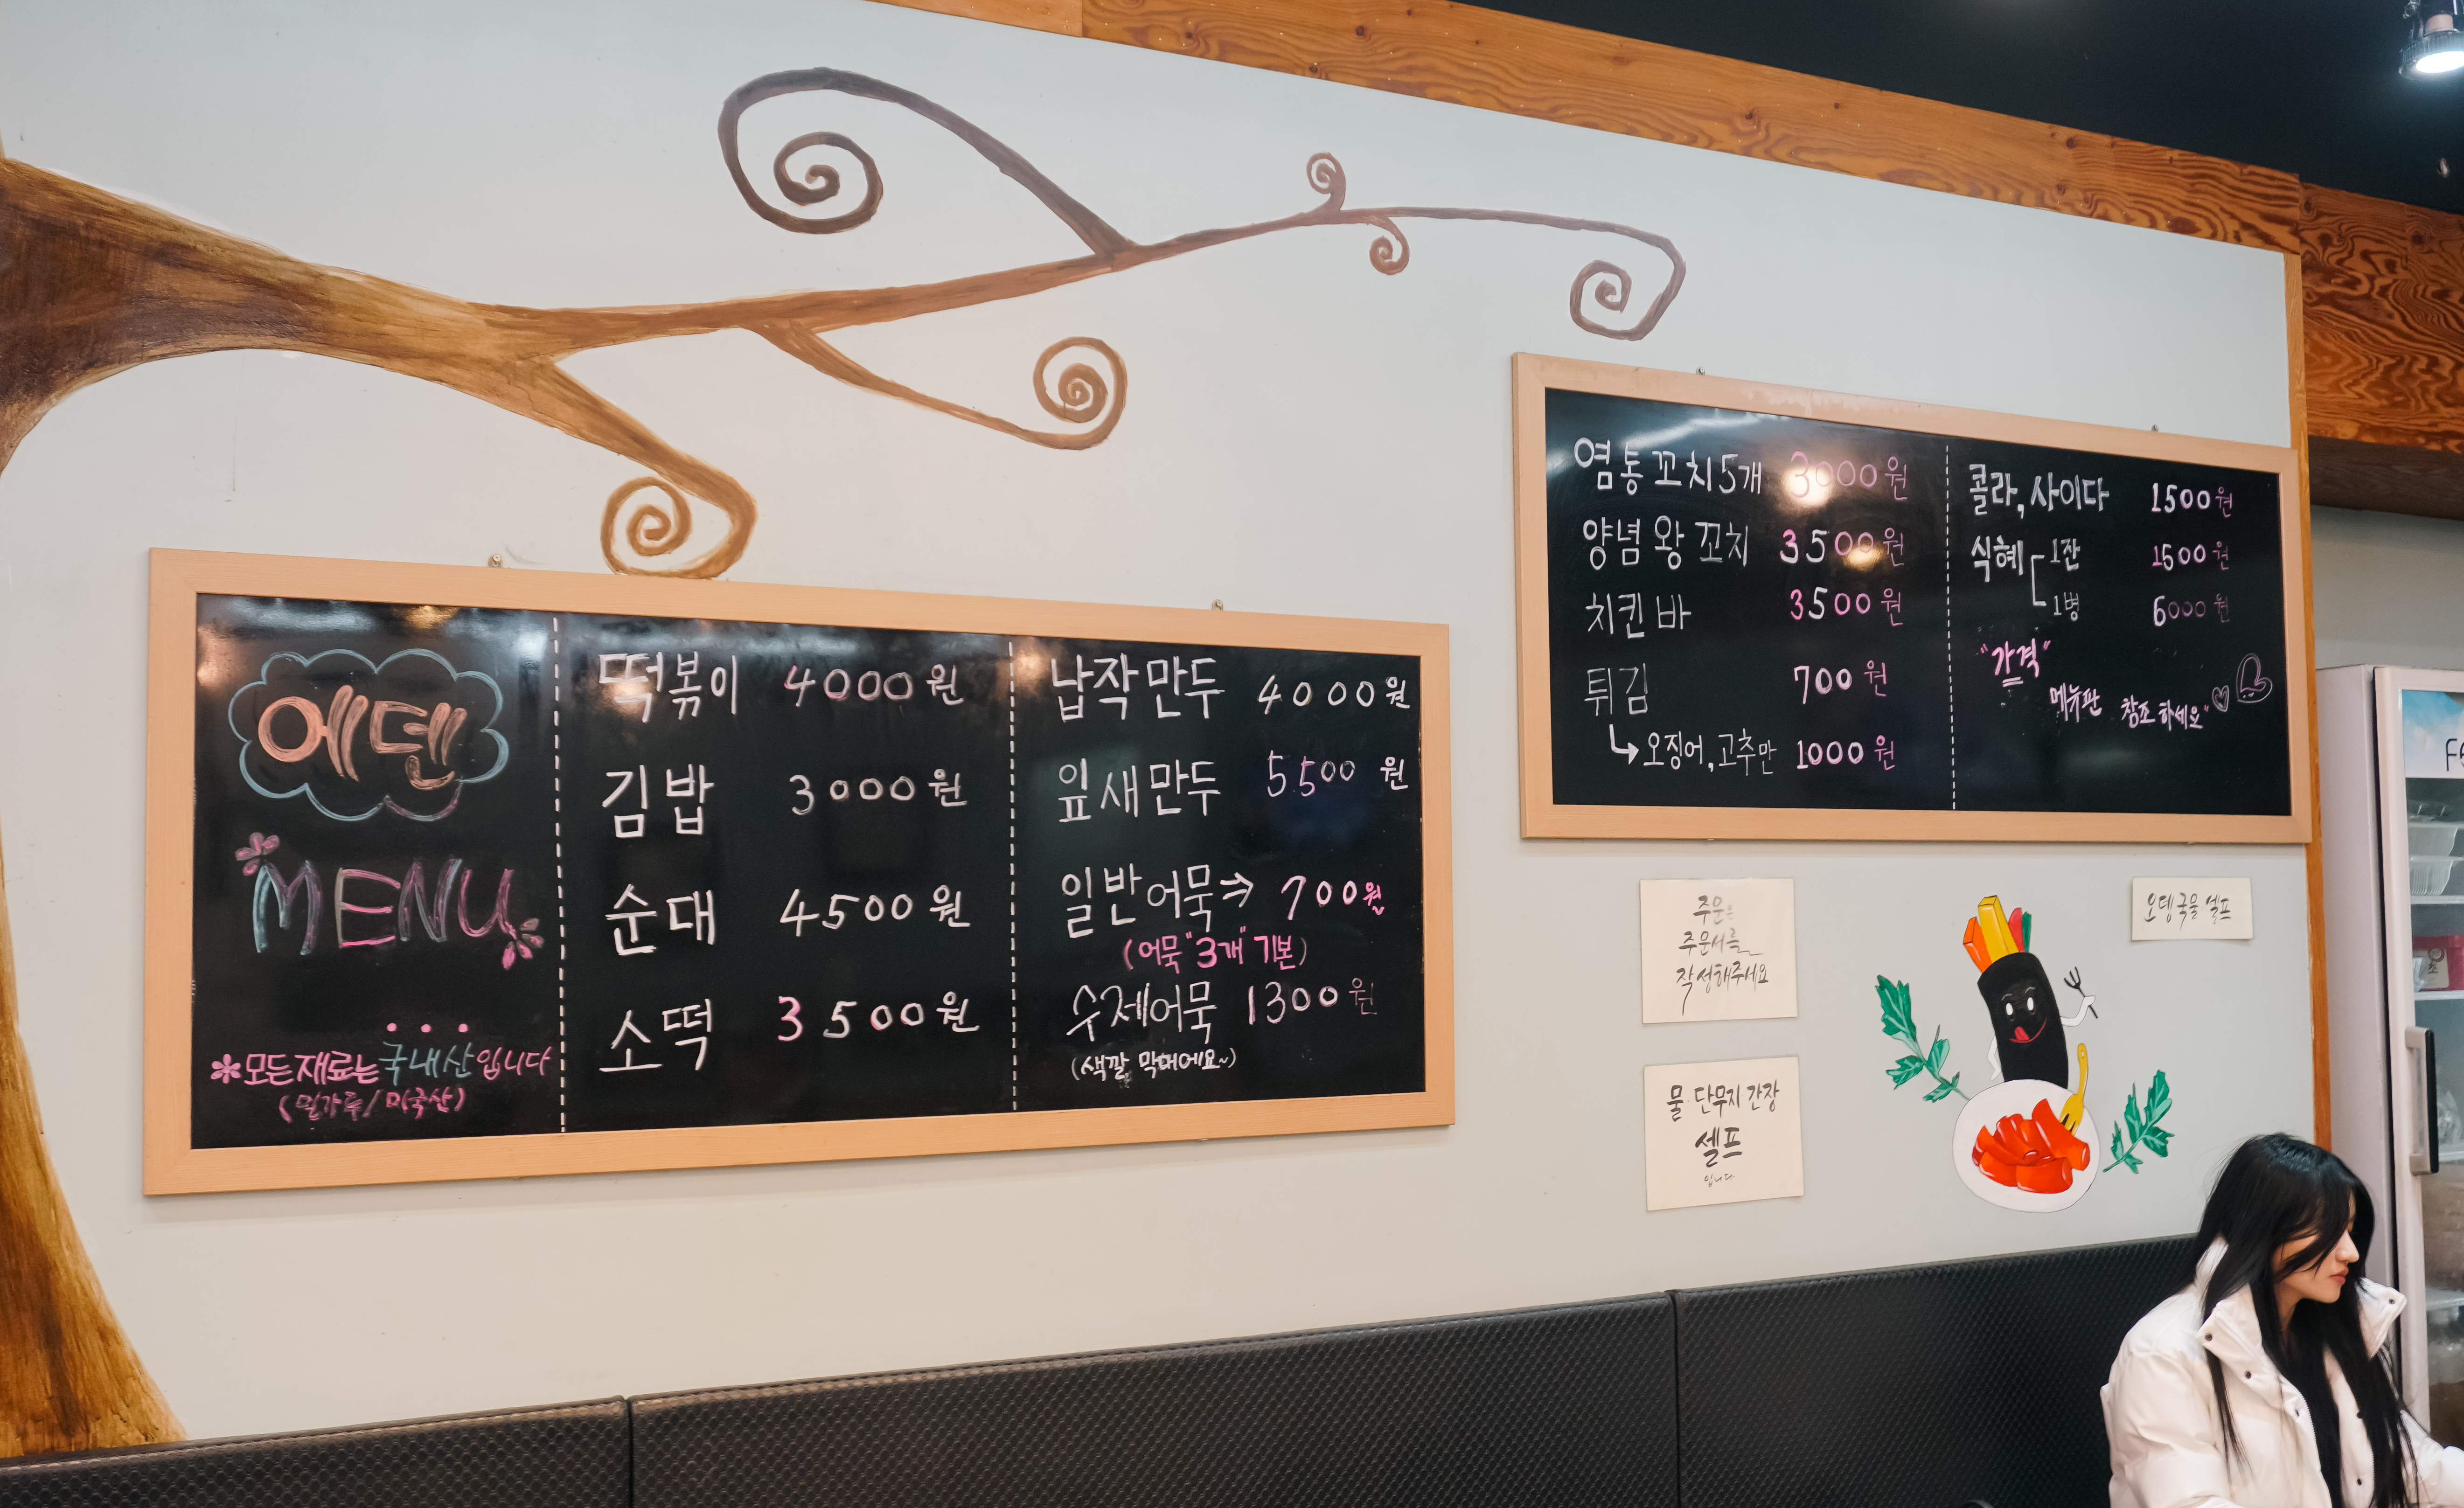 에덴
MENU
*모든 재료는 국내산입니다
(밀가루/미국산)
떡볶이 4000원
김밥 3000원
순대 4500원
소떡 3500원
납작만두 4000원
잎새만두 5500원
일반어묵⇒ 700원
(어묵 "3개" 기본)
수제어묵 1300원
(색깔 막대에요~)
염통꼬치5개 3000원
양념왕꼬치 3500원
치킨바 3500원
튀김 700원
↳오징어,고추만 1000원
콜라,사이다 1500원
식혜 1잔 1500원
1병 6000원
"가격"
메뉴판 참조하세요"♡
주문은
주문서를
작성해주세요
물 단무지 간장
셀프
입니다
오뎅국물 셀프